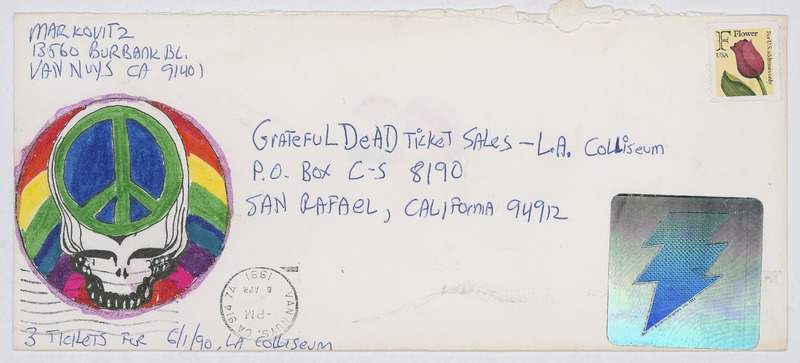 MARKOVITZ
13560 BURBANK BL.
VAN NUYS CA 91401
F Flower
USA
For U.S. addresses only
GRATEFUL DEAD TICKET SALES – L.A. COLLISEUM
P.O. BOX C-S 8190
SAN RAFAEL, CALIFORNIA 94912
VAN NUYS, CA 914 7A
PM
8 APR
1991
3 TICKETS FOR 6/1/90, LA COLLISEUM